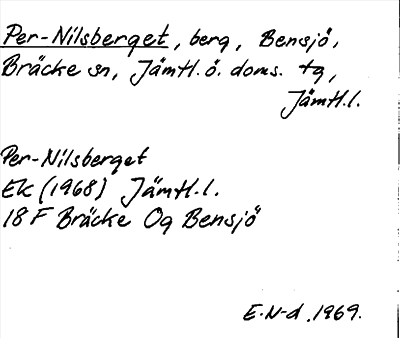 Per-Nilsberget, berg, Bensjö,
Bräcke sn, Jämtl. ö. doms. tg,
Jämtl.l.
Per-Nilsberget
EK (1968) Jämtl.l.
18 F Bräcke Og Bensjö
E.N-d. 1969.